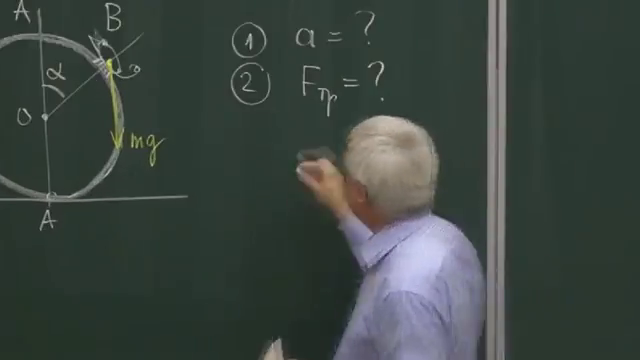 A
B
α
O
mg
A
① a = ?
② Fпр = ?